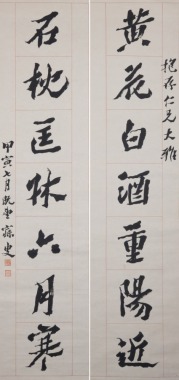 抱存仁兄大雅
黄花白酒重陽近
石枕匡床六月寒
甲寅七月